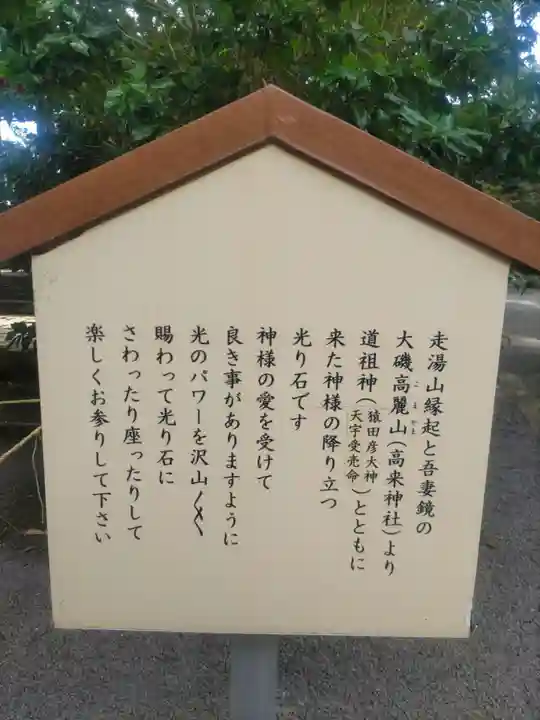 走湯山縁起と吾妻鏡の
大磯高麗山(高来神社)より
道祖神(猿田彦大神 天宇受売命)とともに
来た神様の降り立つ
光り石です
神様の愛を受けて
良き事がありますように
光のパワーを沢山〱〱
賜わって光り石に
さわったり座ったりして
楽しくお参りして下さい